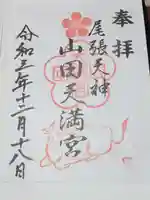 奉拝
尾張天神
山田天満宮
令和三年十二月十八日